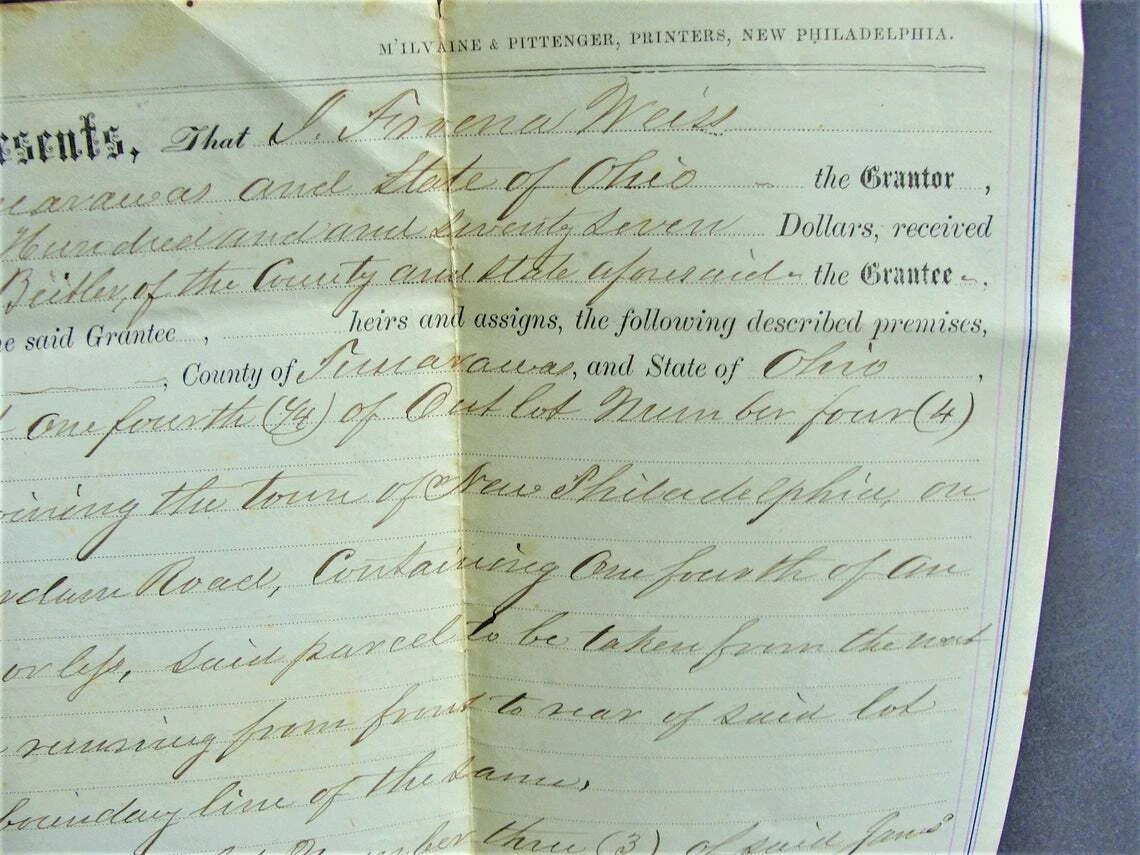 M'ILVAINE & PITTENGER, PRINTERS, NEW PHILADELPHIA.
esents, That I. Weiss
arawas and State of Ohio the Grantor,
Hundred and and Seventy Seven Dollars, received
Beitler, of the County and State aforesaid the Grantee,
e said Grantee, heirs and assigns, the following described premises,
, County of Tuscarawas, and State of Ohio,
One fourth (1/4) of Out lot Number four (4)
oining the town of New Philadelphia, on
Road, Containing One fourth of an
or less, said parcel to be taken from the west
running from front to rear of said lot
boundary line of the same,
Number three (3) of said James